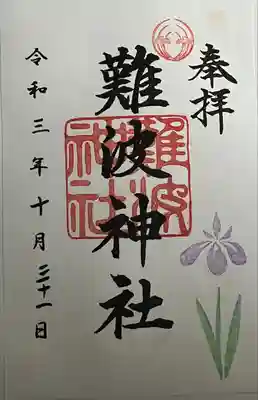 奉拝
難波神社
難波神社
令和三年十月三十一日